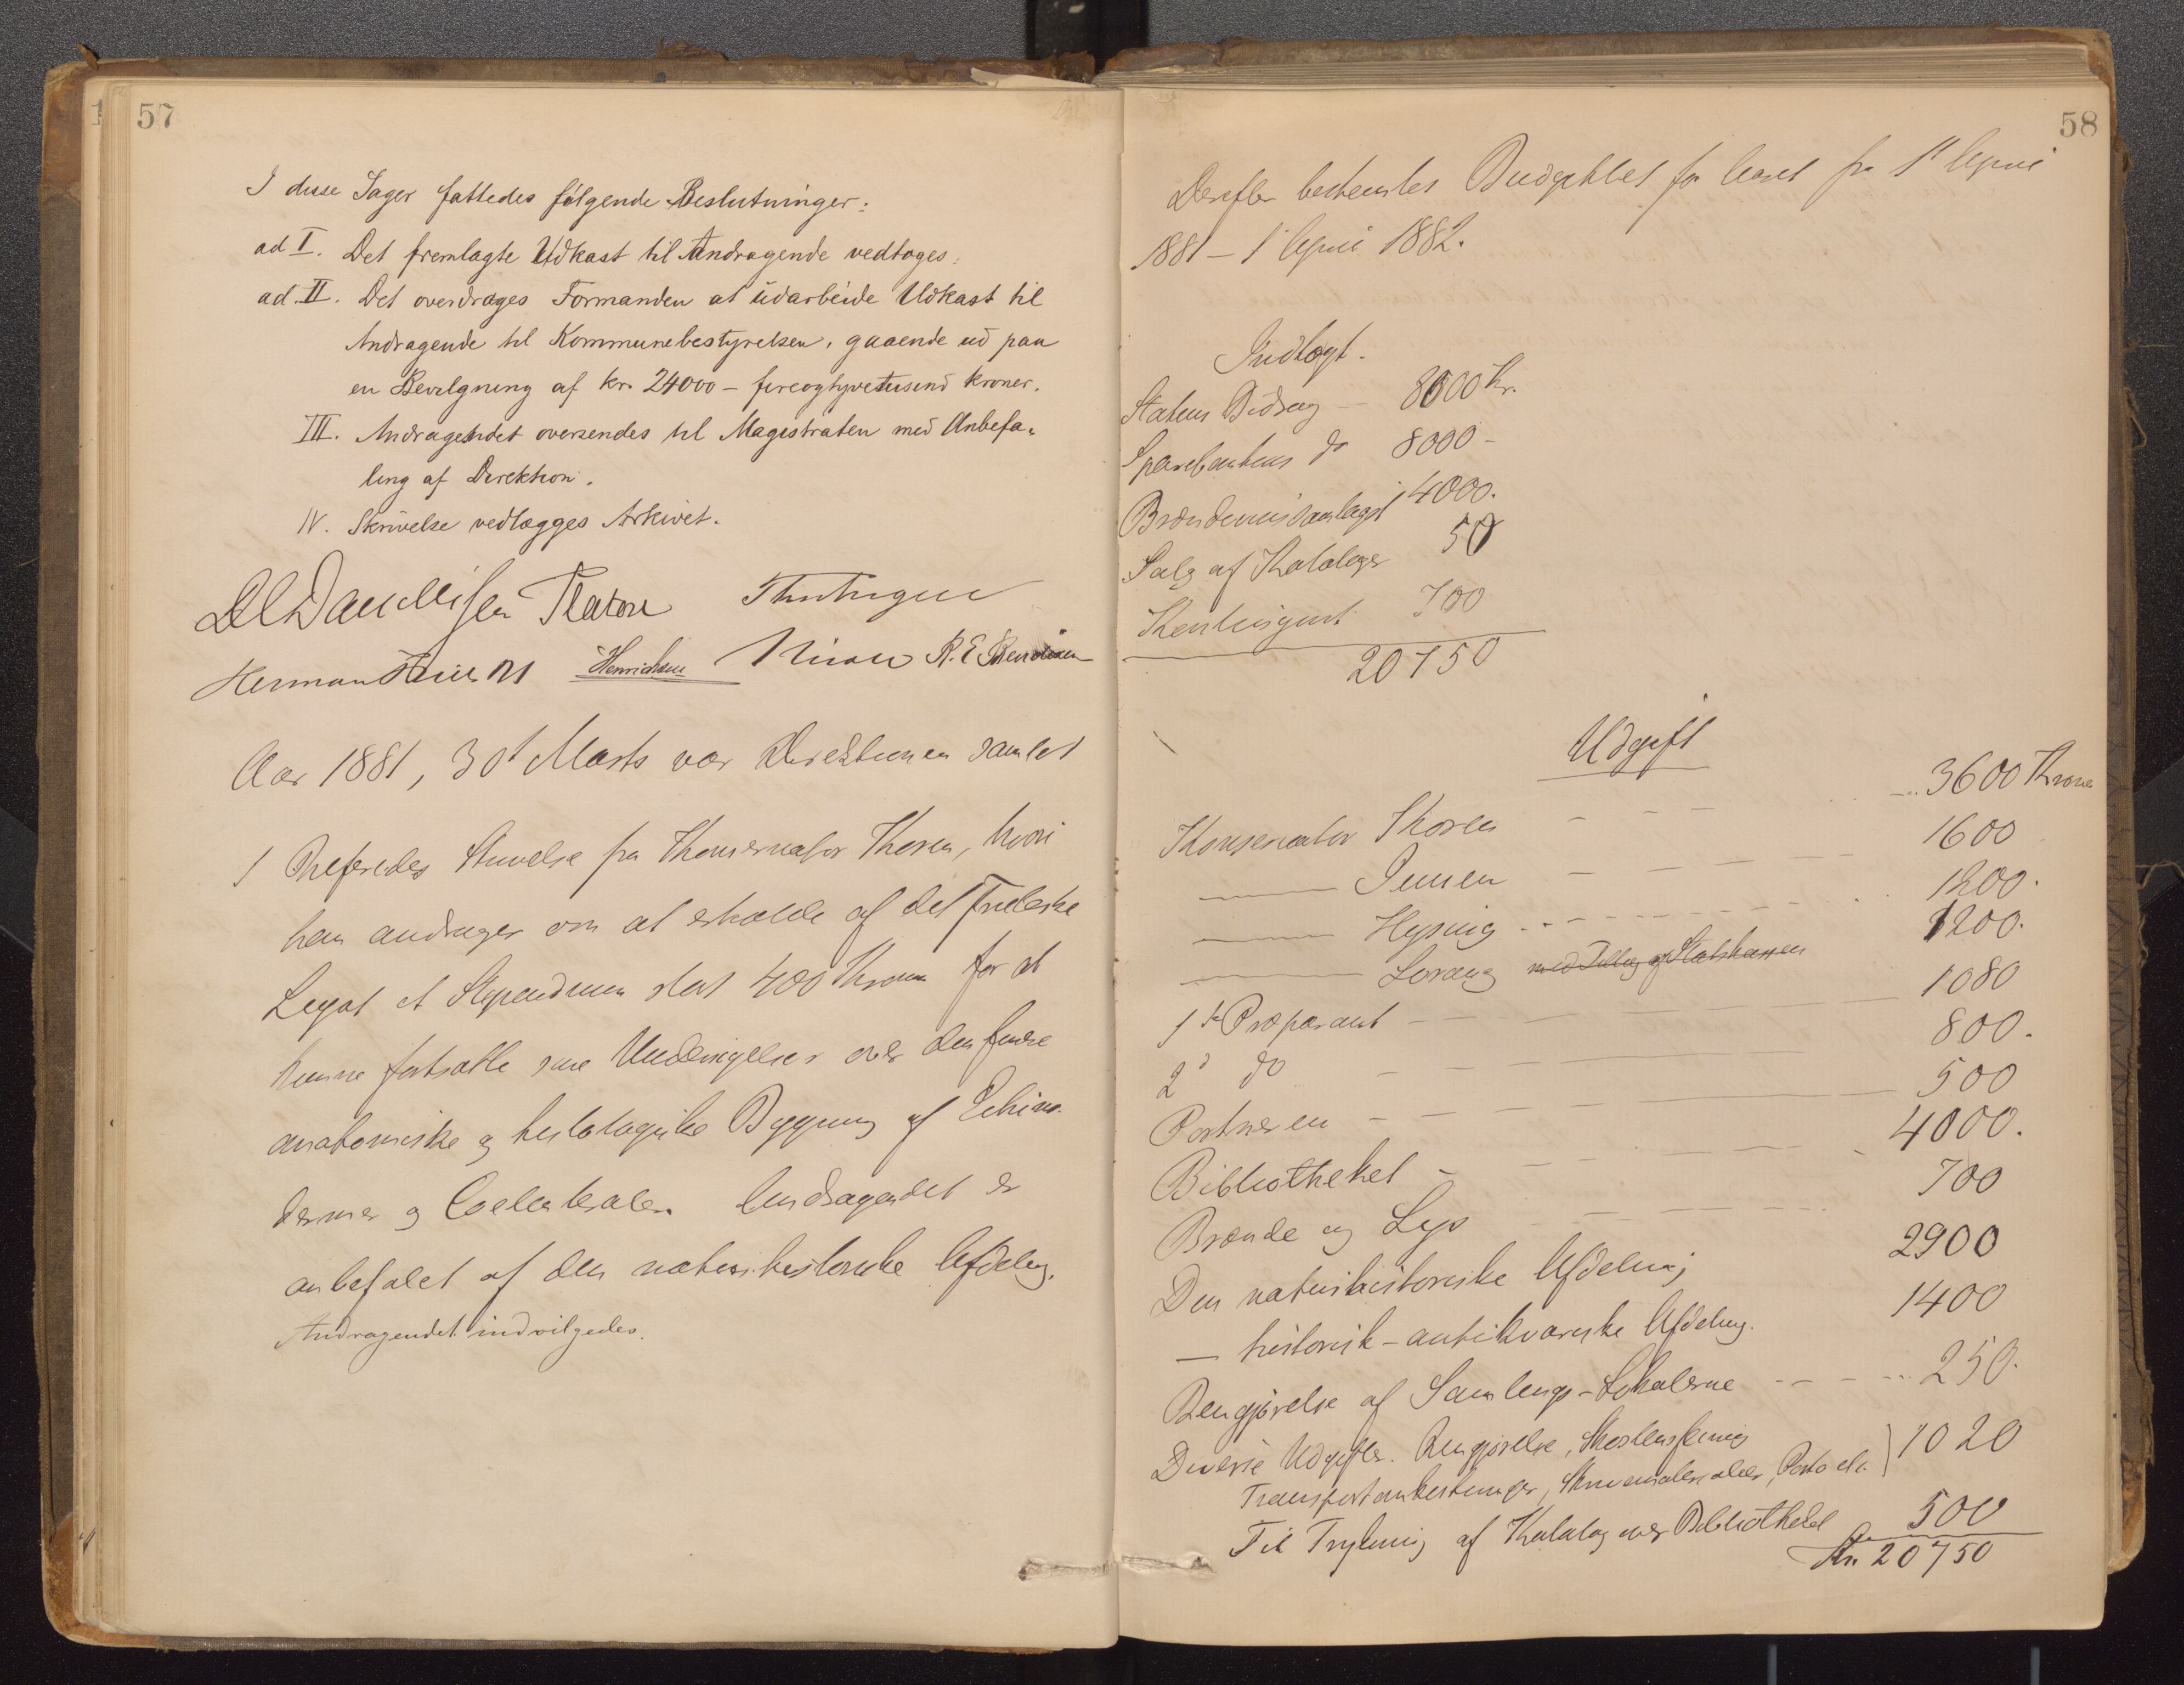 57
I disse Sager fattedes følgende Beslutninger:
ad I. Det fremlagte Udkast til Andragende vedtoges.
ad. II. Det overdrages Formanden at udarbeide Udkast til
Andragende til Kommunebestyrelsen, gaaende ud paa
en Bevilgning af kr. 24000 – fireogtyvetusind kroner.
III. Andragendet oversendes til Magistraten med Anbefa-
ling af Direktion.
IV. Skrivelse vedlægges Arkivet.
DC Danielssen
Herman Friele
Aar 1881, 30t Marts var Direktionen samlet
1 Refereredes Skrivelse fra Konservator Koren, hvori
han andrager om at erholde af det Frieleske
Legat et Stipendium stort 400 Kroner for at
kunne fortsætte sine Undersøgelser over den finere
anatomiske og histologiske Bygning af Echino-
dermer og Coelenterater. Andragendet er
anbefalet af den naturhistoriske Afdeling.
Andragendet indvilgedes.
58
Derefter bestemtes Budgettet for Aaret fra 1t April
1881 – 1 April 1882.
Indtægt.
Statens Bidrag — 8000 Kr.
Sparebankens do 8000 –
Brændeviinsamlaget 4000.
Salg af Kataloger 50
Kontingent 700
20750
Udgift
Konservator Koren – – – 3600 Kroner
— Jensen – – – 1600
— Hysing 1200.
— Lorange med Tillæg af Statskassen 1200.
1ste Præparant – – – 1080
2d do – – – 800.
Portneren – – – 500
Bibliotheket – 4000.
Brænde og Lys – – – 700
Den naturhistoriske Afdeling 2900
— historisk-antikvariske Afdeling. 1400
Rengjørelse af Samlings-Lokalerne – – – 250.
Diverse Udgifter. Rengjørelse, Skorstensfeining
Transportomkostninger, Skrivematerialier, Porto etc. } 1020
Til Trykning af Katalog over Bibliotheket 500
Kr. 20750